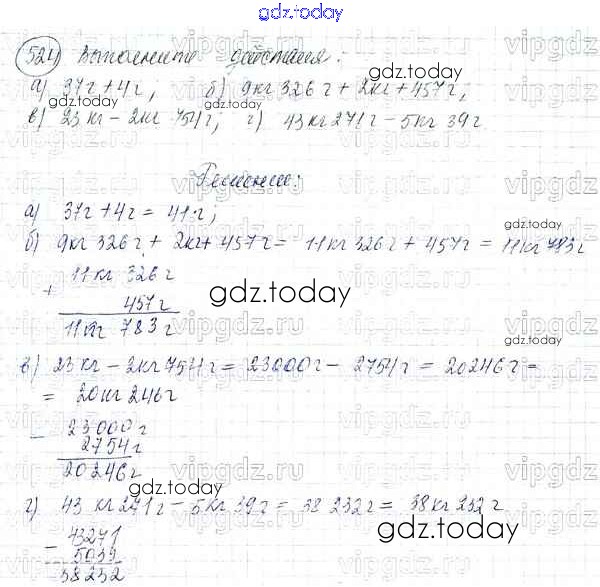 gdz.today
524) Выполните действия:
а) 37г+4г; б) 9кг 326г+2кг+457г;
в) 23кг-2кг 754г; г) 43кг271г-5кг 39г
Решение:
а) 37г+4г=41г;
б) 9кг 326г+2кг+457г=11кг326г+457г=11кг783г
+ 11кг 326г
457г
11кг 783г
gdz.today
в) 23кг-2кг754г=23000г-2754г=20246г=
=20кг246г
- 23000г
2754г
20246г
gdz.today
г) 43кг271г-5кг39г=38232г=38кг232г
- 43271
5039
38232
gdz.today